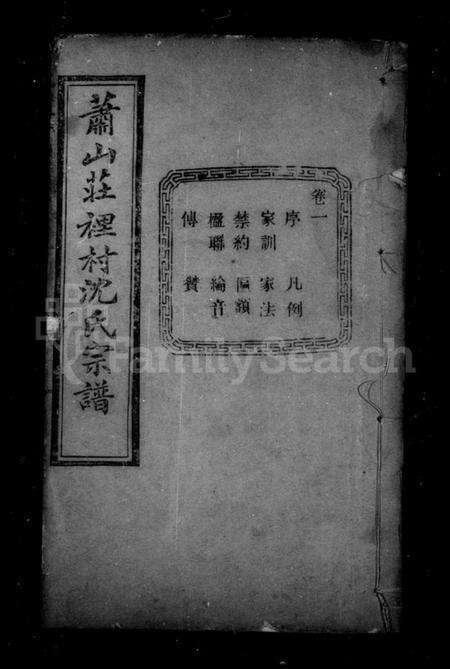 蕭山莊裡村沈氏宗譜
卷一
序 凡例
家訓 家法
禁約 匾額
楹聯 綸音
傳 贊
FamilySearch